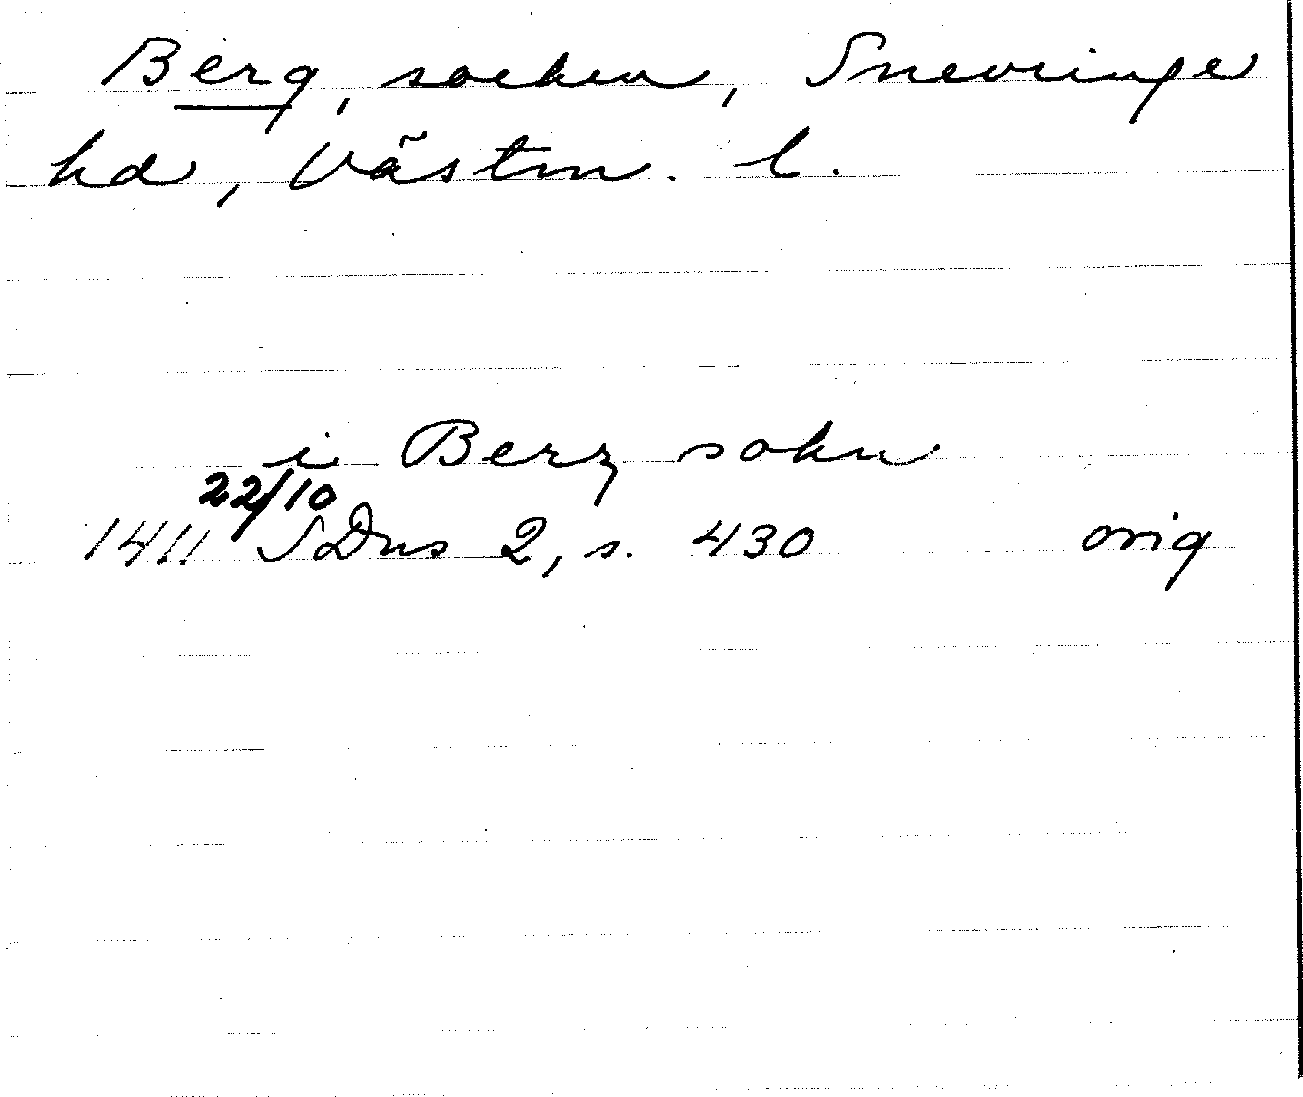 Berg, socken, Snevringe
hd, Västm. l.
i Berz sokn
22/10
1411 SDns 2, s. 430 orig